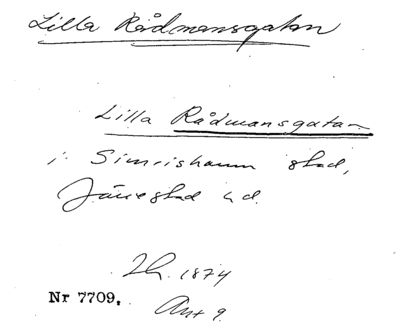 Lilla Rådmansgatan
Lilla Rådmansgatan
i Simrishamn stad,
Järrestad hd.
Lh. 1874
Nr 7709.
Ant 9